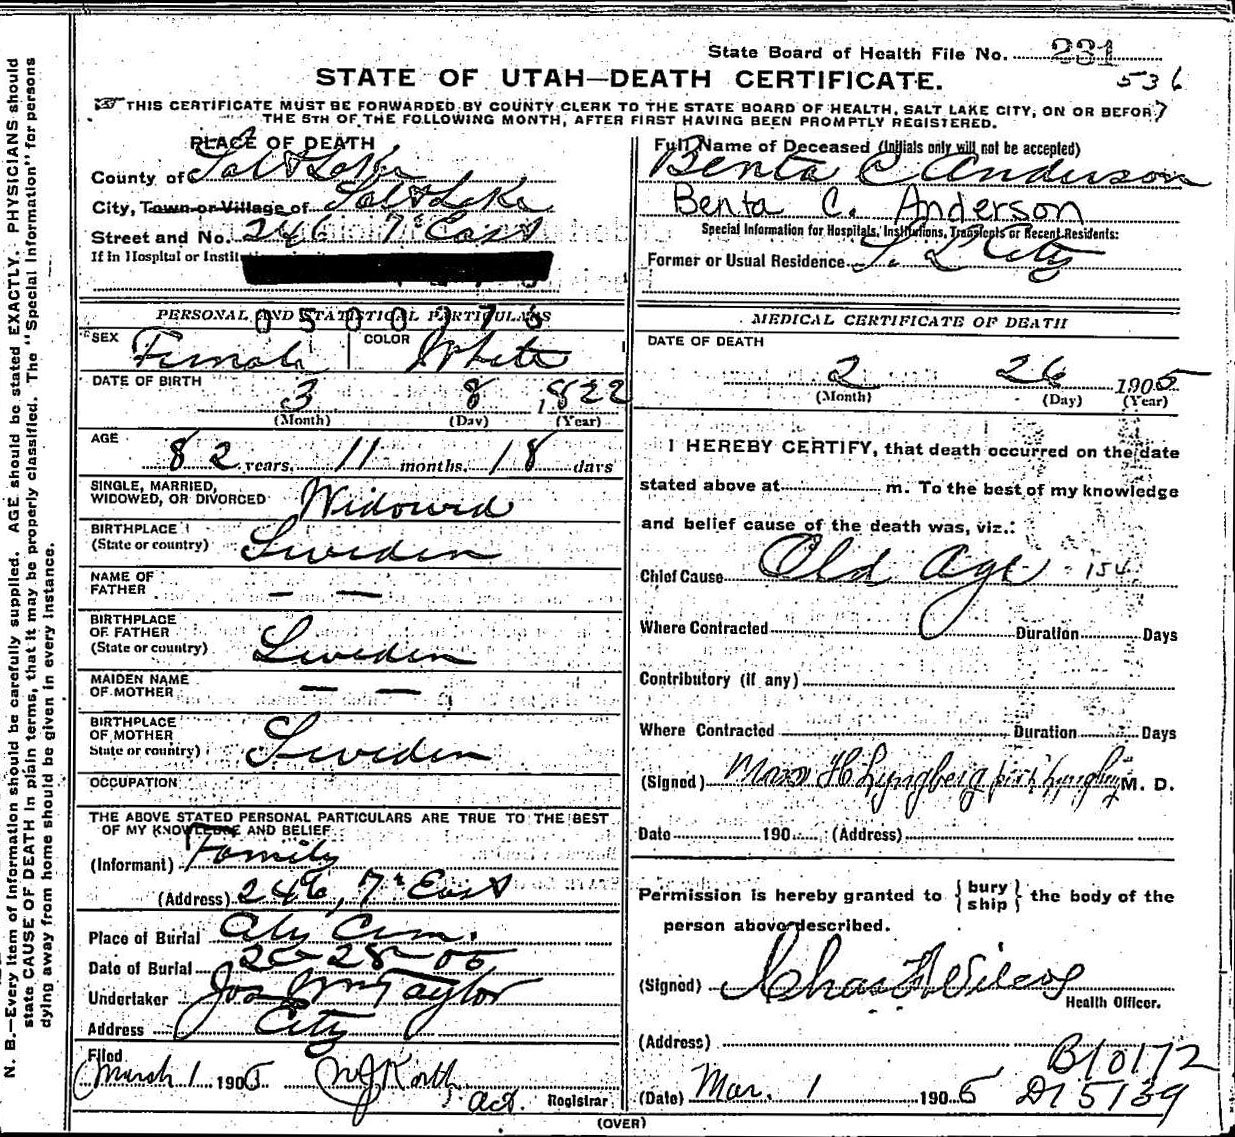 State Board of Health File No. 231
536
STATE OF UTAH—DEATH CERTIFICATE.
THIS CERTIFICATE MUST BE FORWARDED BY COUNTY CLERK TO THE STATE BOARD OF HEALTH, SALT LAKE CITY, ON OR BEFOR
THE 5TH OF THE FOLLOWING MONTH, AFTER FIRST HAVING BEEN PROMPTLY REGISTERED.
PLACE OF DEATH
County of Salt Lake
City, Town or Village of Salt Lake
Street and No. 246 7th East
If in Hospital or Instit
0500976
PERSONAL AND STATISTICAL PARTICULARS
SEX Female COLOR White
DATE OF BIRTH
3 8 1822
(Month) (Day) (Year)
AGE
82 years, 11 months, 18 days
SINGLE, MARRIED,
WIDOWED, OR DIVORCED Widowed
BIRTHPLACE
(State or country) Sweden
NAME OF
FATHER — —
BIRTHPLACE
OF FATHER
(State or country) Sweden
MAIDEN NAME
OF MOTHER — —
BIRTHPLACE
OF MOTHER
State or country) Sweden
OCCUPATION
THE ABOVE STATED PERSONAL PARTICULARS ARE TRUE TO THE BEST
OF MY KNOWLEDGE AND BELIEF
(Informant) Family
(Address) 246, 7th East
Place of Burial City Cem.
Date of Burial 2-28-05
Undertaker Jos Wm Taylor
Address City
Filed
March 1 1905
Act. Registrar
Full Name of Deceased (Initials only will not be accepted)
Benta C Anderson
Benta C. Anderson
Special Information for Hospitals, Institutions, Transients or Recent Residents:
Former or Usual Residence S. L City
MEDICAL CERTIFICATE OF DEATH
DATE OF DEATH
2 26 1905
(Month) (Day) (Year)
I HEREBY CERTIFY, that death occurred on the date
stated above at m. To the best of my knowledge
and belief cause of the death was, viz.:
Chief Cause Old Age 154
Where Contracted Duration Days
Contributory (if any)
Where Contracted Duration Days
(Signed) H Lyngberg M. D.
Date 190 (Address)
Permission is hereby granted to {bury ship} the body of the
person above described.
(Signed) Chas
Health Officer.
(Address)
B10172
(Date) Mar. 1 1905 D15139
(OVER)
N. B.—Every item of information should be carefully supplied. AGE should be stated EXACTLY. PHYSICIANS should
state CAUSE OF DEATH in plain terms, that it may be properly classified. The "Special Information" for persons
dying away from home should be given in every instance.